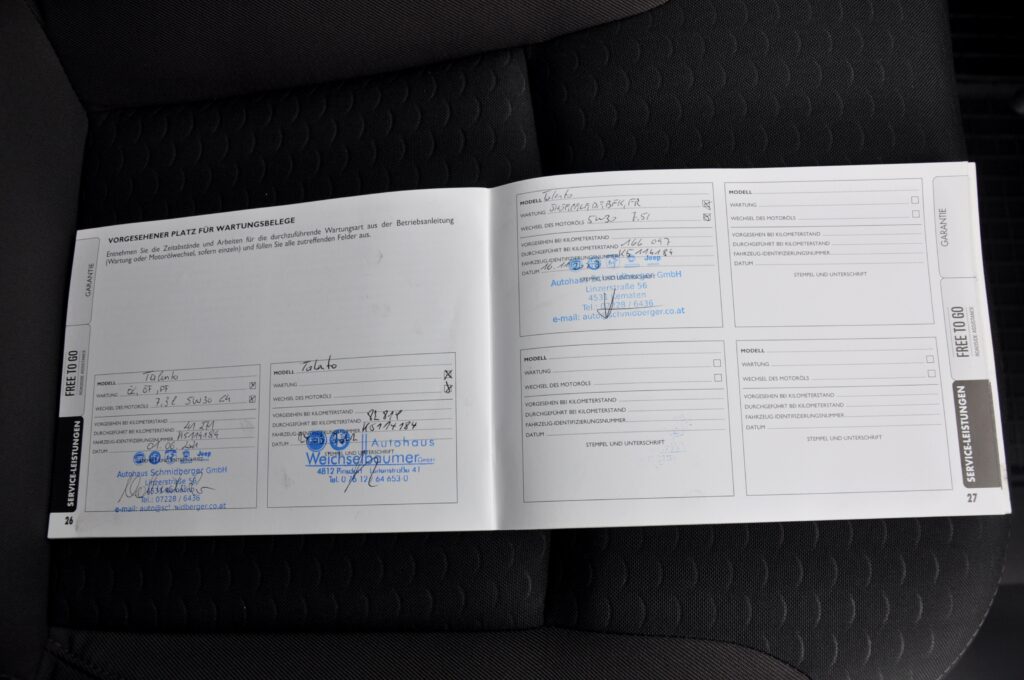 VORGESEHENER PLATZ FÜR WARTUNGSBELEGE
Entnehmen Sie die Zeitabstände und Arbeiten für die durchzuführende Wartungsart aus der Betriebsanleitung
(Wartung oder Motorölwechsel, sofern einzeln) und füllen Sie alle zutreffenden Felder aus.
GARANTIE
FREE TO GO
ROADSIDE ASSISTANCE
SERVICE-LEISTUNGEN
26
MODELL Talento
WARTUNG
WECHSEL DES MOTORÖLS 7,3l 5W30
VORGESEHEN BEI KILOMETERSTAND
DURCHGEFÜHRT BEI KILOMETERSTAND
FAHRZEUG-IDENTIFIZIERUNGSNUMMER KS114184
DATUM
Jeep
Autohaus Schmidberger GmbH
Linzerstraße 56
4531 Kematen
Tel.: 07228 / 6436
e-mail: auto@schmidberger.co.at
MODELL Talento
WARTUNG
WECHSEL DES MOTORÖLS
VORGESEHEN BEI KILOMETERSTAND
DURCHGEFÜHRT BEI KILOMETERSTAND
FAHRZEUG-IDENTIFIZIERUNGSNUMMER KS114184
DATUM
STEMPEL UND UNTERSCHRIFT
Autohaus
Weichselbaumer GmbH
4812 Pinsdorf
Tel. 0 76 12 / 64 653-0
MODELL Talento
WARTUNG
WECHSEL DES MOTORÖLS 5W30 7.5l
VORGESEHEN BEI KILOMETERSTAND
DURCHGEFÜHRT BEI KILOMETERSTAND 166 097
FAHRZEUG-IDENTIFIZIERUNGSNUMMER KS114184
DATUM
Jeep
STEMPEL UND UNTERSCHRIFT
Autohaus Schmidberger GmbH
Linzerstraße 56
4531 Kematen
Tel.: 07228 / 6436
e-mail: auto@schmidberger.co.at
MODELL
WARTUNG
WECHSEL DES MOTORÖLS
VORGESEHEN BEI KILOMETERSTAND
DURCHGEFÜHRT BEI KILOMETERSTAND
FAHRZEUG-IDENTIFIZIERUNGSNUMMER
DATUM
STEMPEL UND UNTERSCHRIFT
MODELL
WARTUNG
WECHSEL DES MOTORÖLS
VORGESEHEN BEI KILOMETERSTAND
DURCHGEFÜHRT BEI KILOMETERSTAND
FAHRZEUG-IDENTIFIZIERUNGSNUMMER
DATUM
STEMPEL UND UNTERSCHRIFT
MODELL
WARTUNG
WECHSEL DES MOTORÖLS
VORGESEHEN BEI KILOMETERSTAND
DURCHGEFÜHRT BEI KILOMETERSTAND
FAHRZEUG-IDENTIFIZIERUNGSNUMMER
DATUM
STEMPEL UND UNTERSCHRIFT
GARANTIE
FREE TO GO
ROADSIDE ASSISTANCE
SERVICE-LEISTUNGEN
27